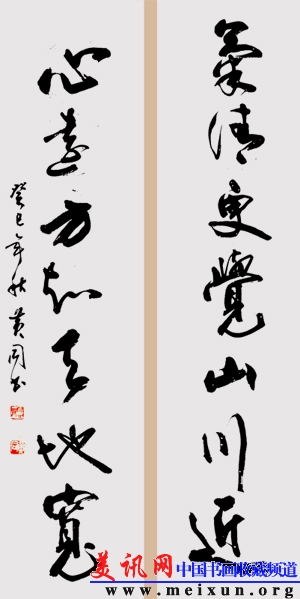 氣清更覺山川近
心遠方知天地寬
癸巳年秋黄
美讯网 中国书画收藏频道
www.meixun.org